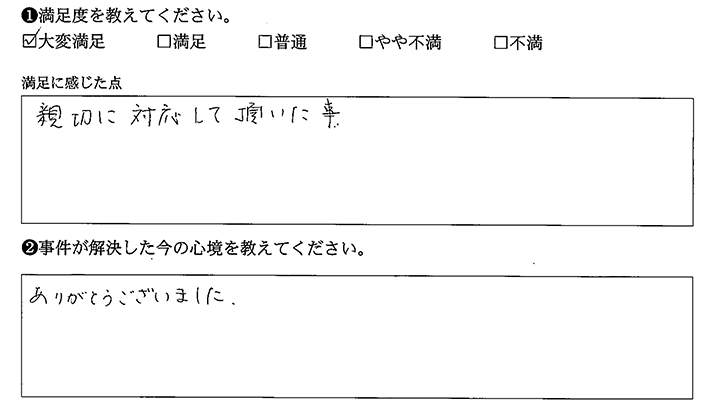 ❶満足度を教えてください。
☑大変満足 □満足 □普通 □やや不満 □不満
満足に感じた点
親切に対応して頂いた事
❷事件が解決した今の心境を教えてください。
ありがとうございました.